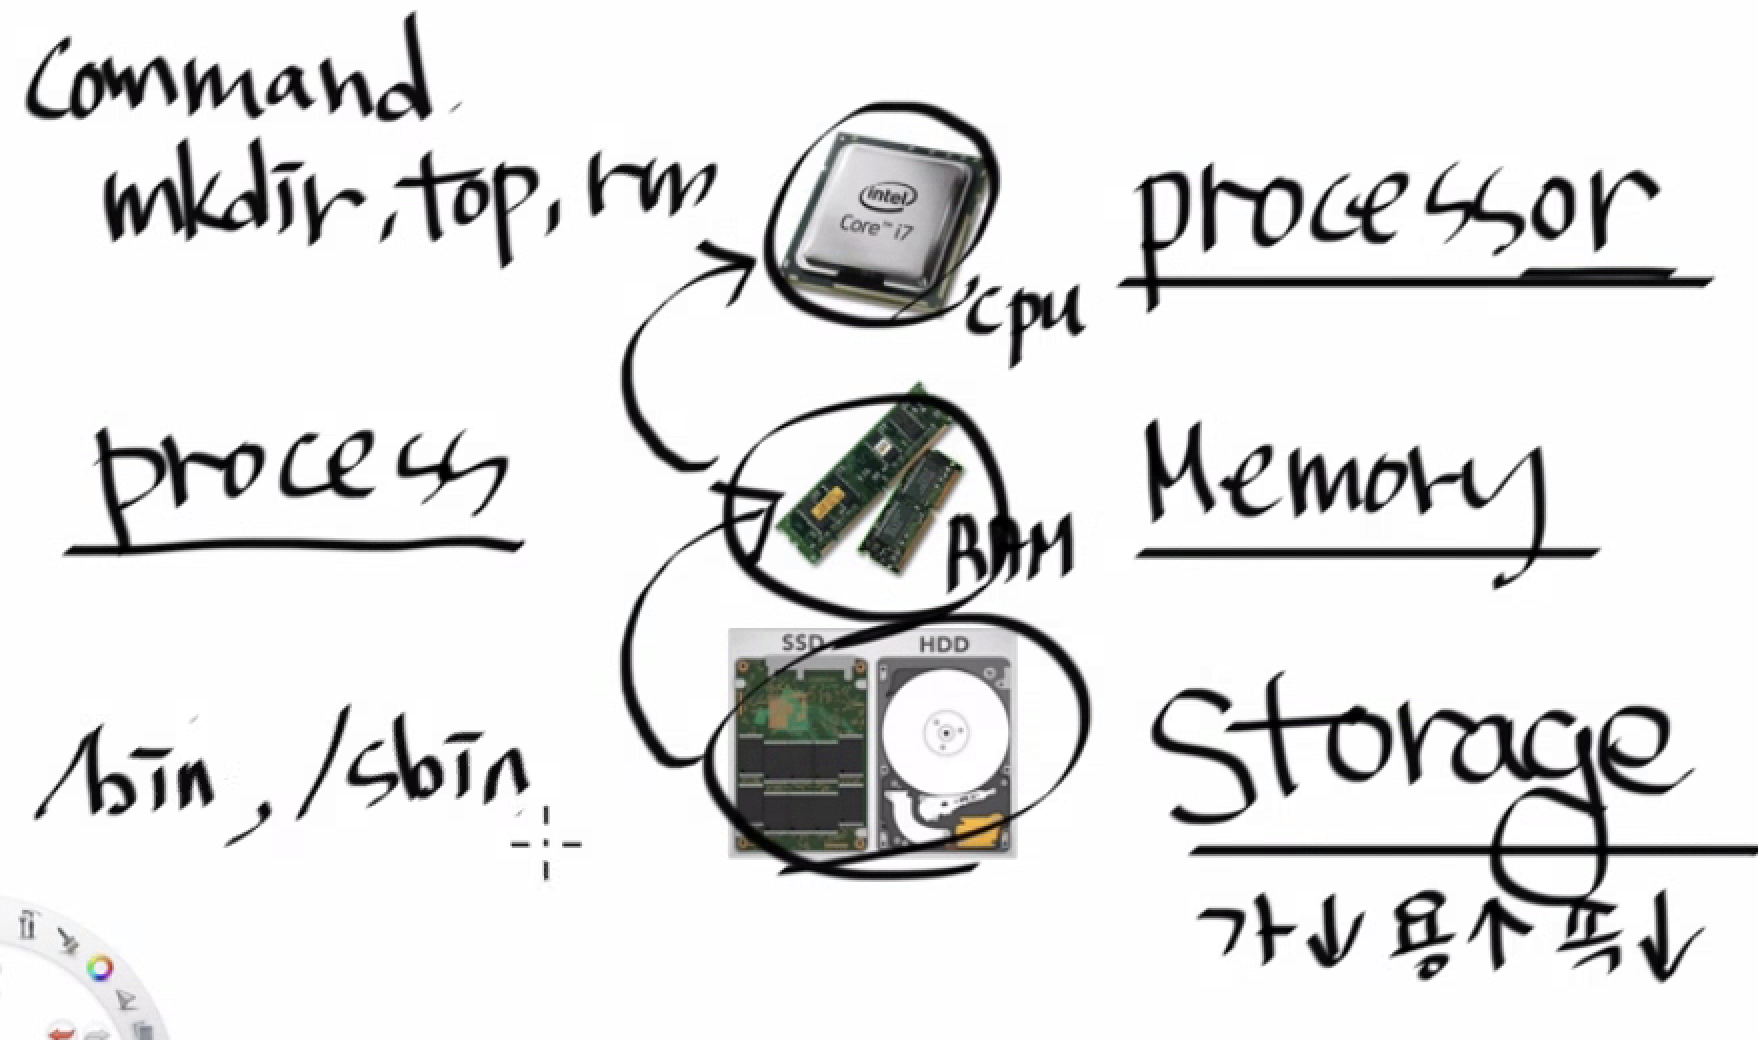 Command
mkdir, top, rm
intel
Core™ i7
cpu
processor
process
RAM
Memory
SSD
HDD
/bin, /sbin
Storage
가↓ 용↑ 폭↓